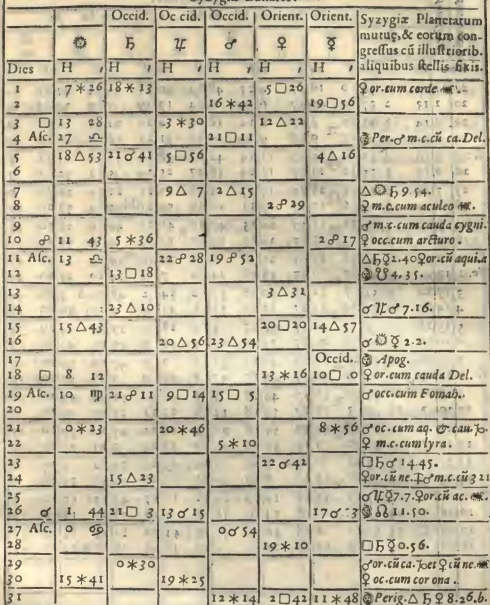 Occid. Oc cid. Occid. Orient. Orient. Syzygiæ Planetarum
☼ ♄ ♃ ♂ ♀ ☿ mutuę, & eorum con-
gressus cū illustriorib.
Dies H , H , H , H , H , H , aliquibus stellis fixis.
1 7✶26 18✶13 5□26 ♀ or. cum corde
2 16✶42 19□56
3 □ 13 28 3✶30 12△22
4 Asc. 27 ♎ 21□11 Per. ♂ m.c. cū ca. Del.
5 18△53 21☌41 5□56 4△16
6
7 9△7 2△15 △☼♄ 9.54.
8 2☍29 ♀ m.c. cum aculeo
9 ♂ m.c. cum cauda cygni.
10 ☍ 11 43 5✶36 2☍17 ♀ occ. cum arcturo.
11 Asc. 13 ♎ 22☍28 19☍52 △♄☿ 2.40 ♀ or. cū aquila
12 13□18 ☋ 4.35.
13 3△31
14 23△10 ☌♃♂ 7.16.
15 15△43 20□20 14△57
16 20△56 23△54 ☌☼☿ 2.2.
17 Occid. Apog.
18 □ 8 12 13✶16 10□0 ♀ or. cum cauda Del.
19 Asc. 10 ♍ 21☍11 9□14 15□5 ♂ occ. cum Fomah.
20
21 0✶23 20✶46 8✶56 ♂ oc. cum aq. & cau. ♑.
22 5✶10 ♀ m.c. cum lyra.
23 22☌42 □♄♂ 14.45.
24 15△23
25
26 ☌ 1 44 21□3 13☌15 ☊ 11.50.
27 Asc. 0 ♋ 0☌54
28 19✶10 □♄♀ 0.56.
29 0✶30
30 15✶41 19✶25 ♀ oc. cum corona.
31 12✶14 2□42 11✶48 Perig. △♄♀ 8.26.b.